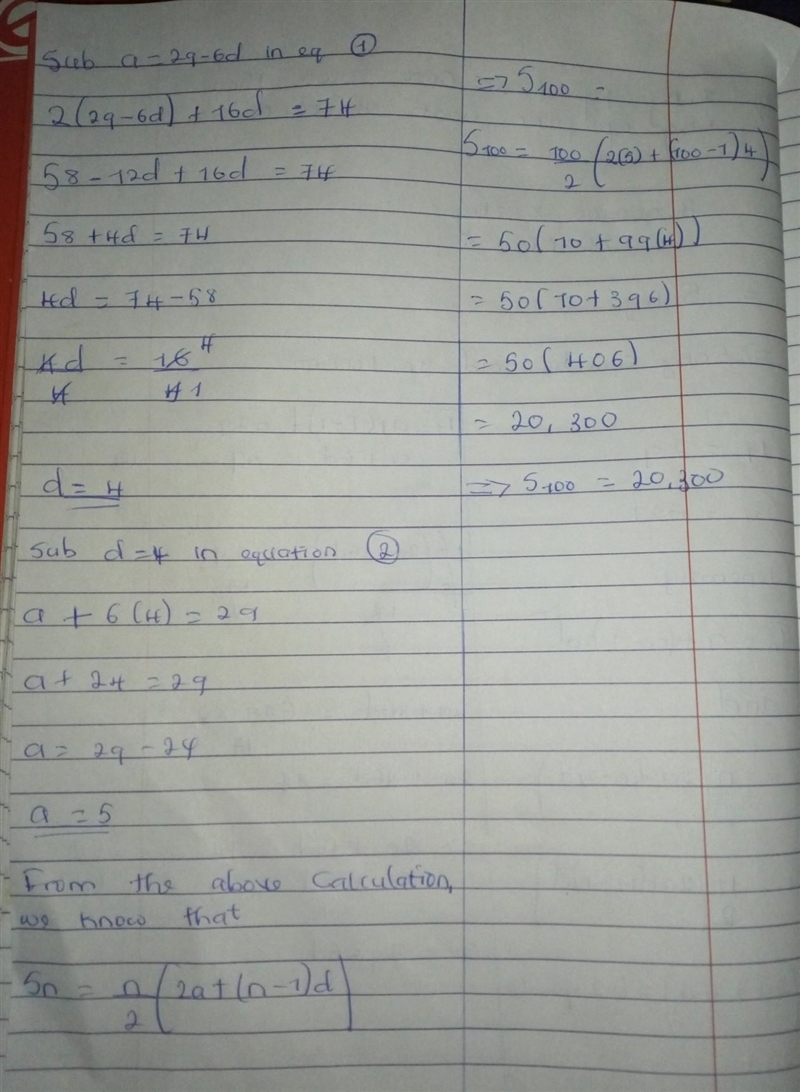 Sub a = 29-6d in eq ①
2(29-6d) + 16d = 74
58 - 12d + 16d = 74
58 + 4d = 74
4d = 74 - 58
4d/4 = 16 4/4 1
d = 4
Sub d=4 in equation ②
a + 6(4) = 29
a + 24 = 29
a = 29 - 24
a = 5
From the above Calculation,
we know that
Sn = n/2 (2a+(n-1)d)
=> S100 =
S100 = 100/2 (2(5) + (100-1)4)
= 50(10 + 99(4))
= 50(10+396)
= 50(406)
= 20,300
=> S100 = 20,300